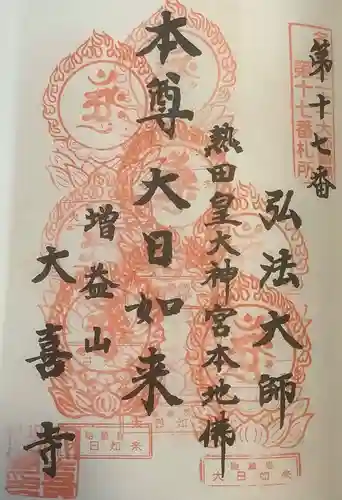 第十七番
第十七番札所
弘法大師
熱田皇大神宮本地佛
本尊大日如来
増益山
大喜寺
大日如来